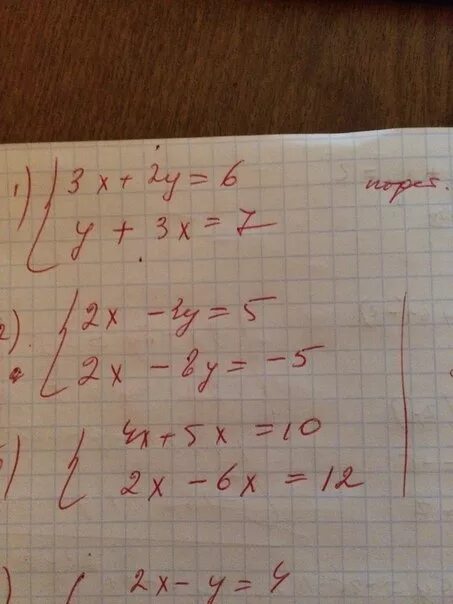 1) 3x + 2y = 6
y + 3x = 7
2) 2x - 2y = 5
2x - 8y = -5
4x + 5x = 10
2x - 6x = 12
2x - y = 4